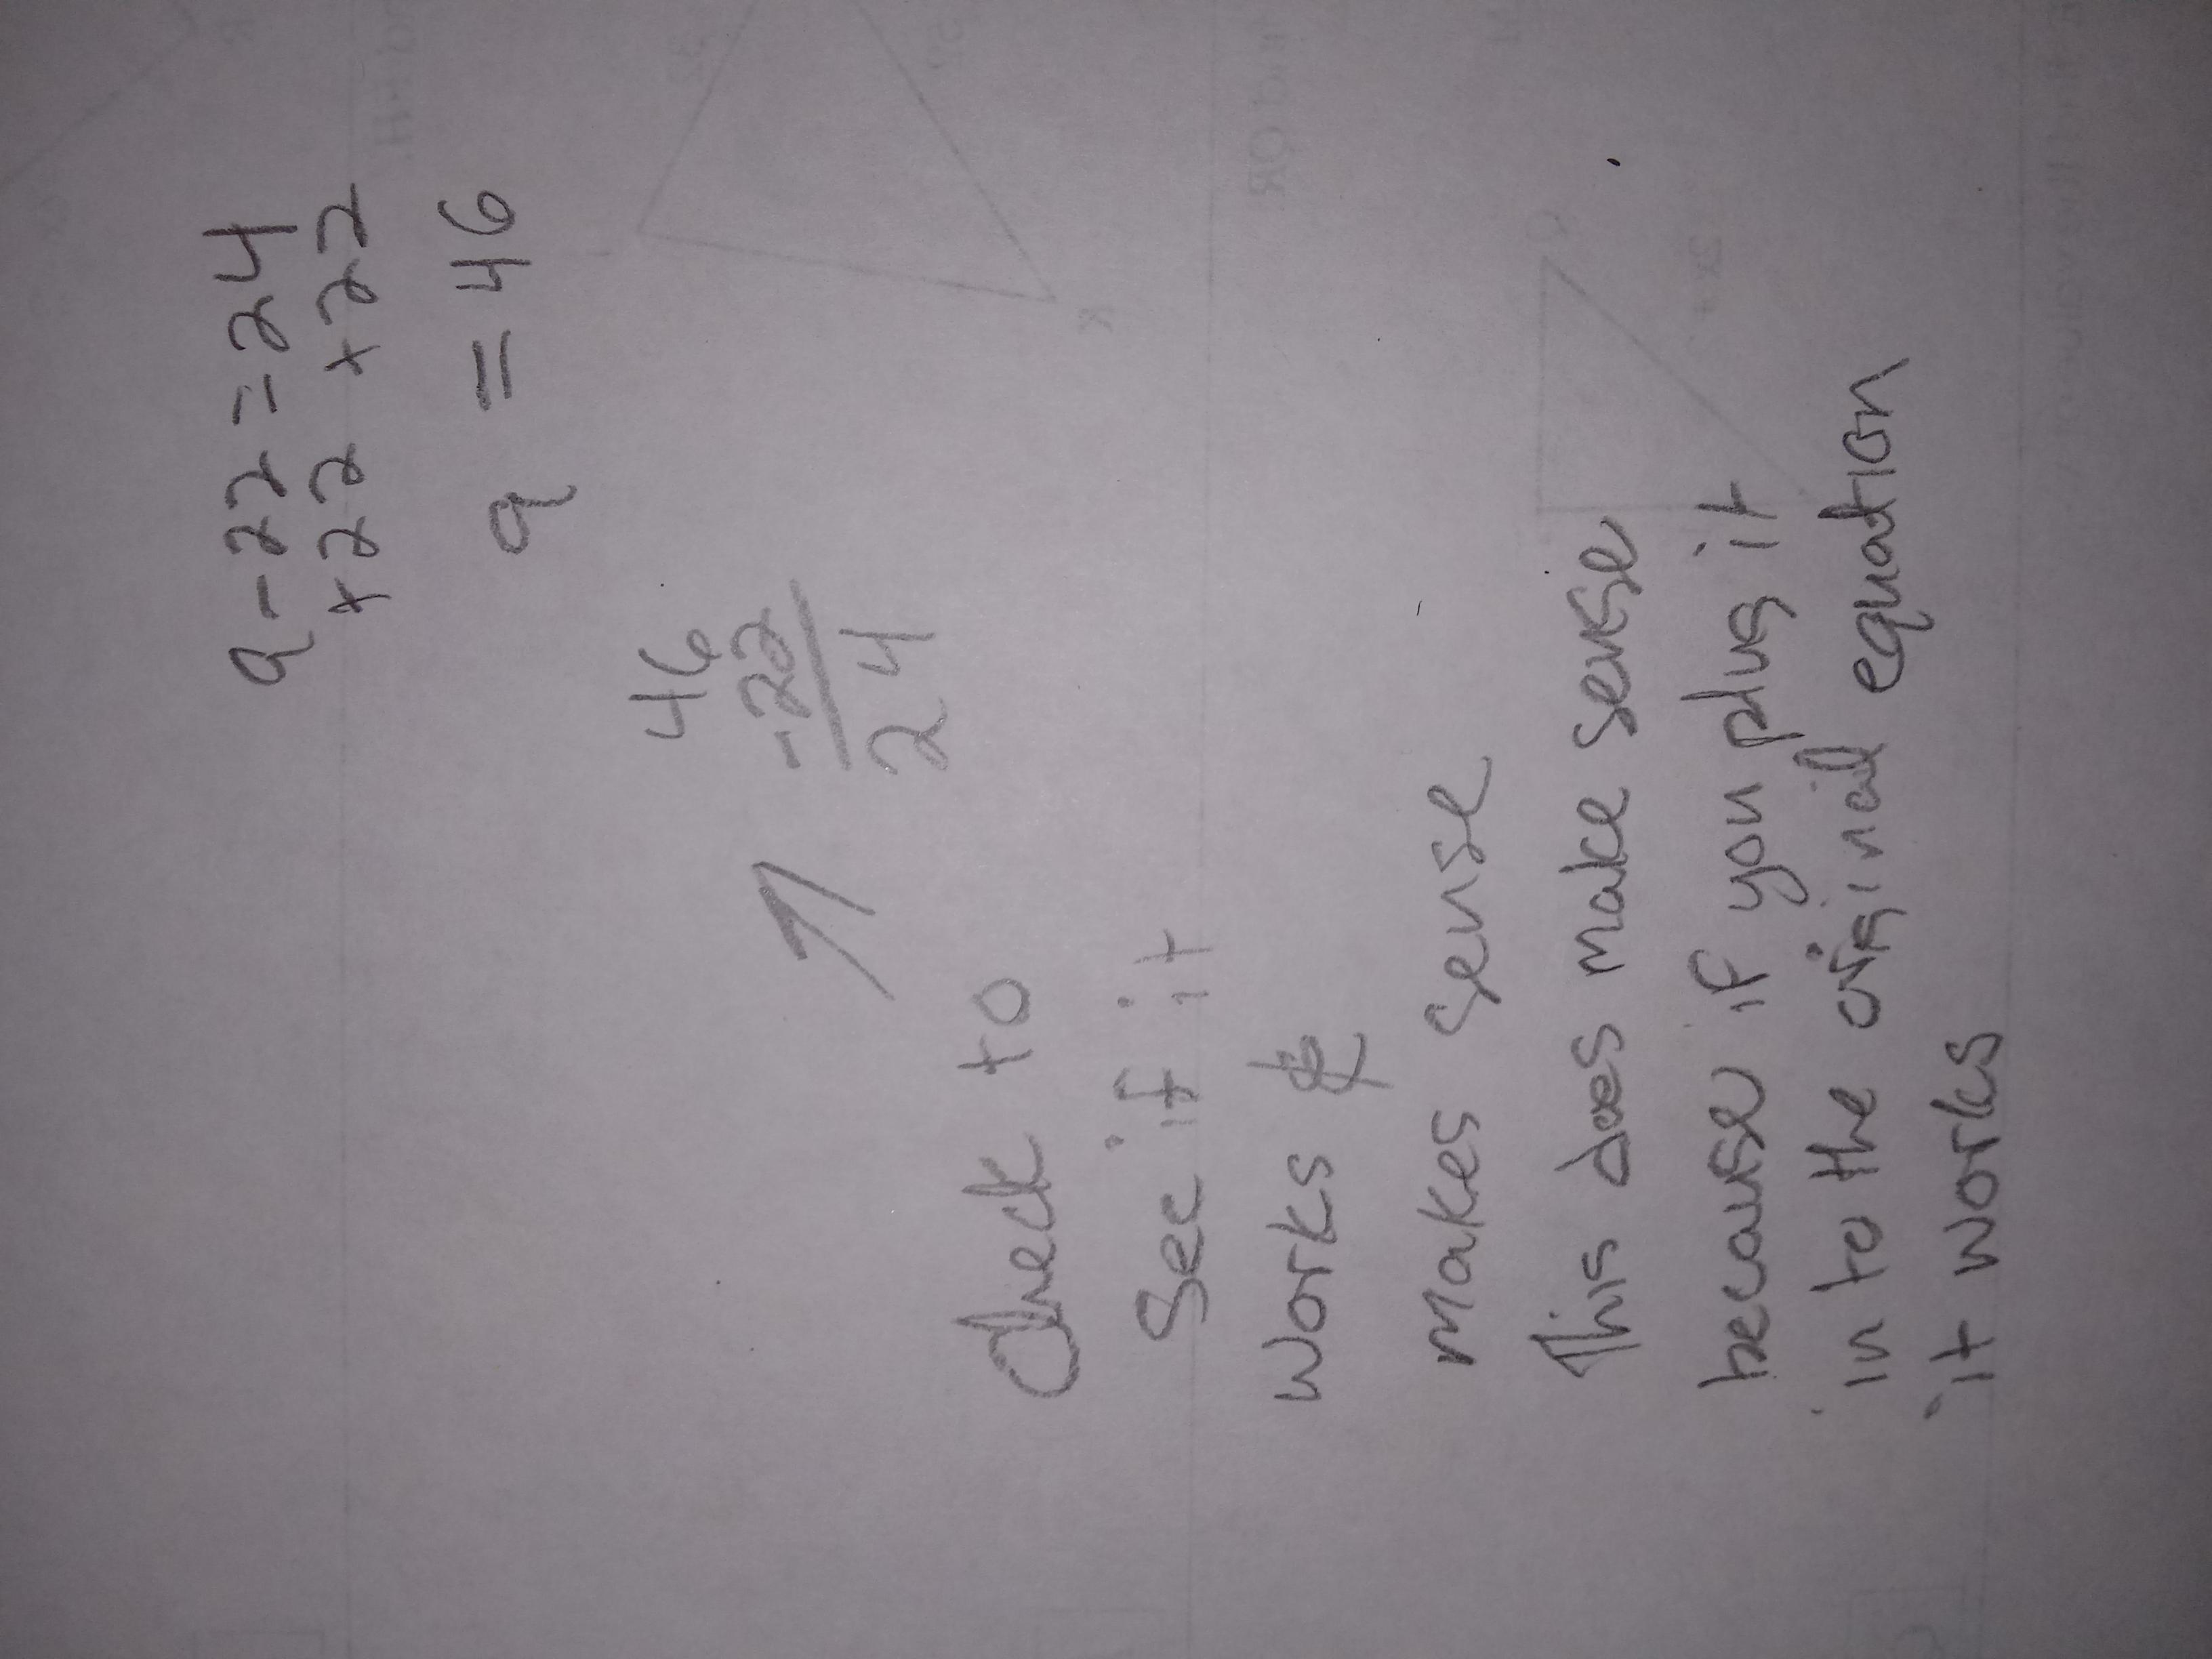 q - 22 = 24
+22 +22
q = 46
46
-22
24
Check to
see if it
works &
makes sense
This does make sense
because if you plug it
in to the original equation
it works